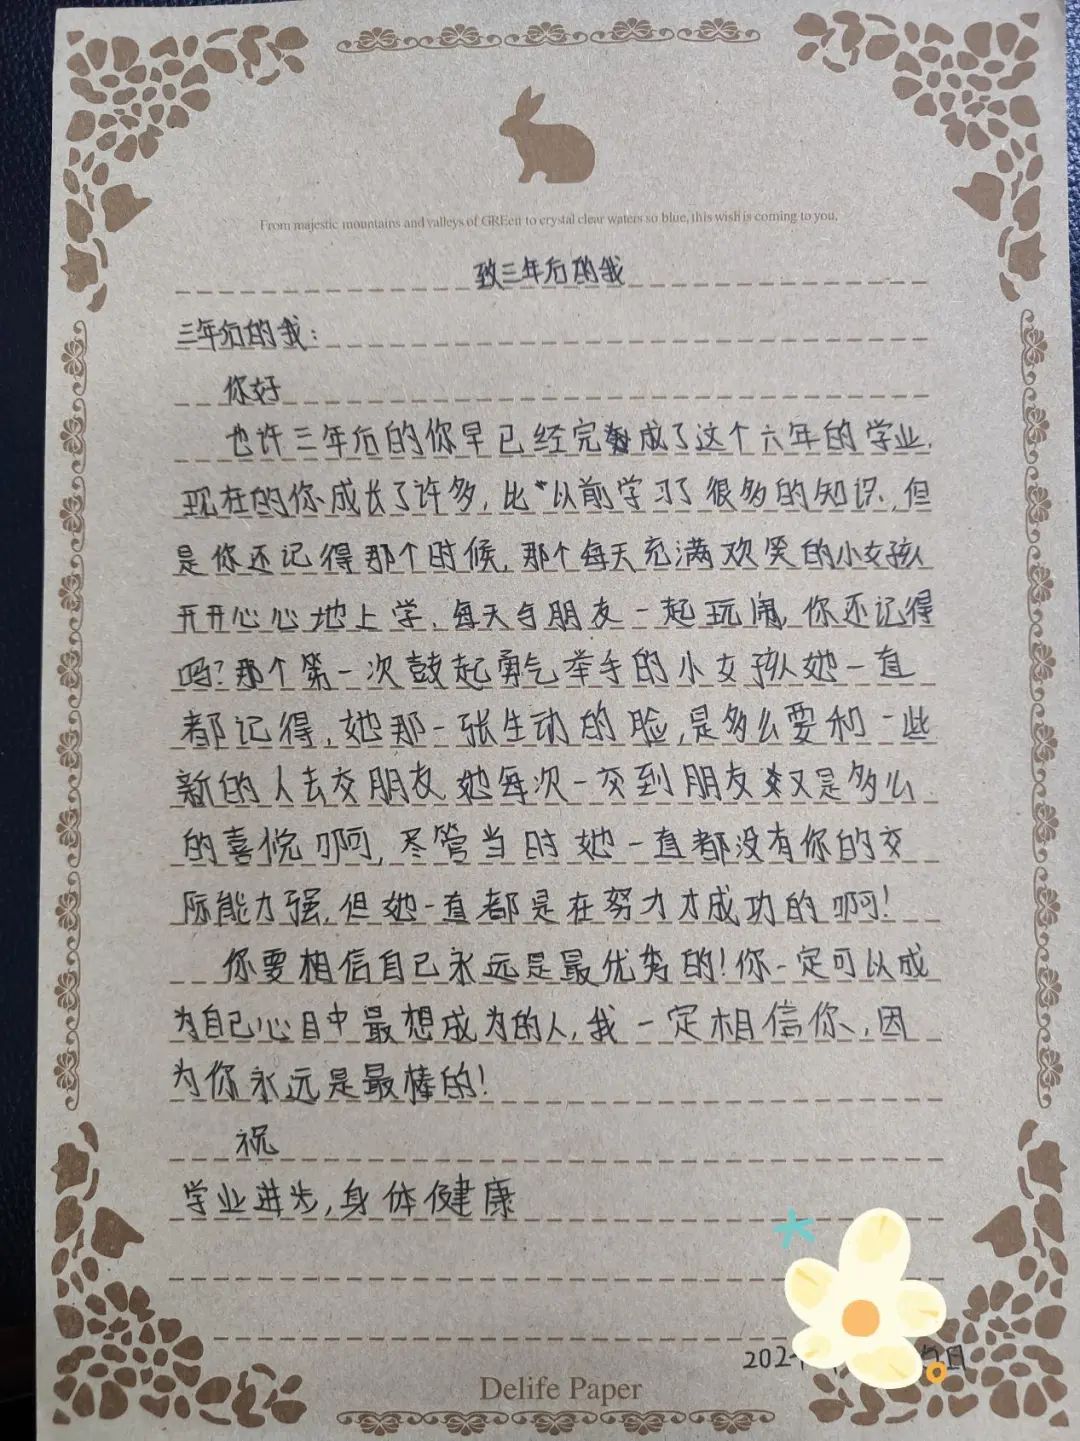 From majestic mountains and valleys of GREen to crystal clear waters so blue, this wish is coming to you.
致三年后的我
三年后的我:
你好
也许三年后的你早已经完成了这个六年的学业,
现在的你成长了许多,比以前学习了很多的知识,但
是你还记得那个时候,那个每天充满欢笑的小女孩
开开心心地上学,每天与朋友一起玩闹,你还记得
吗?那个第一次鼓起勇气举手的小女孩她一直
都记得,她那一张生动的脸,是多么要和一些
新的人去交朋友她每次一交到朋友又是多么
的喜悦啊,尽管当时她一直都没有你的交
际能力强,但她一直都是在努力才成功的啊!
你要相信自己永远是最优秀的!你一定可以成
为自己心目中最想成为的人,我一定相信你,因
为你永远是最棒的!
祝
学业进步,身体健康
202
Delife Paper